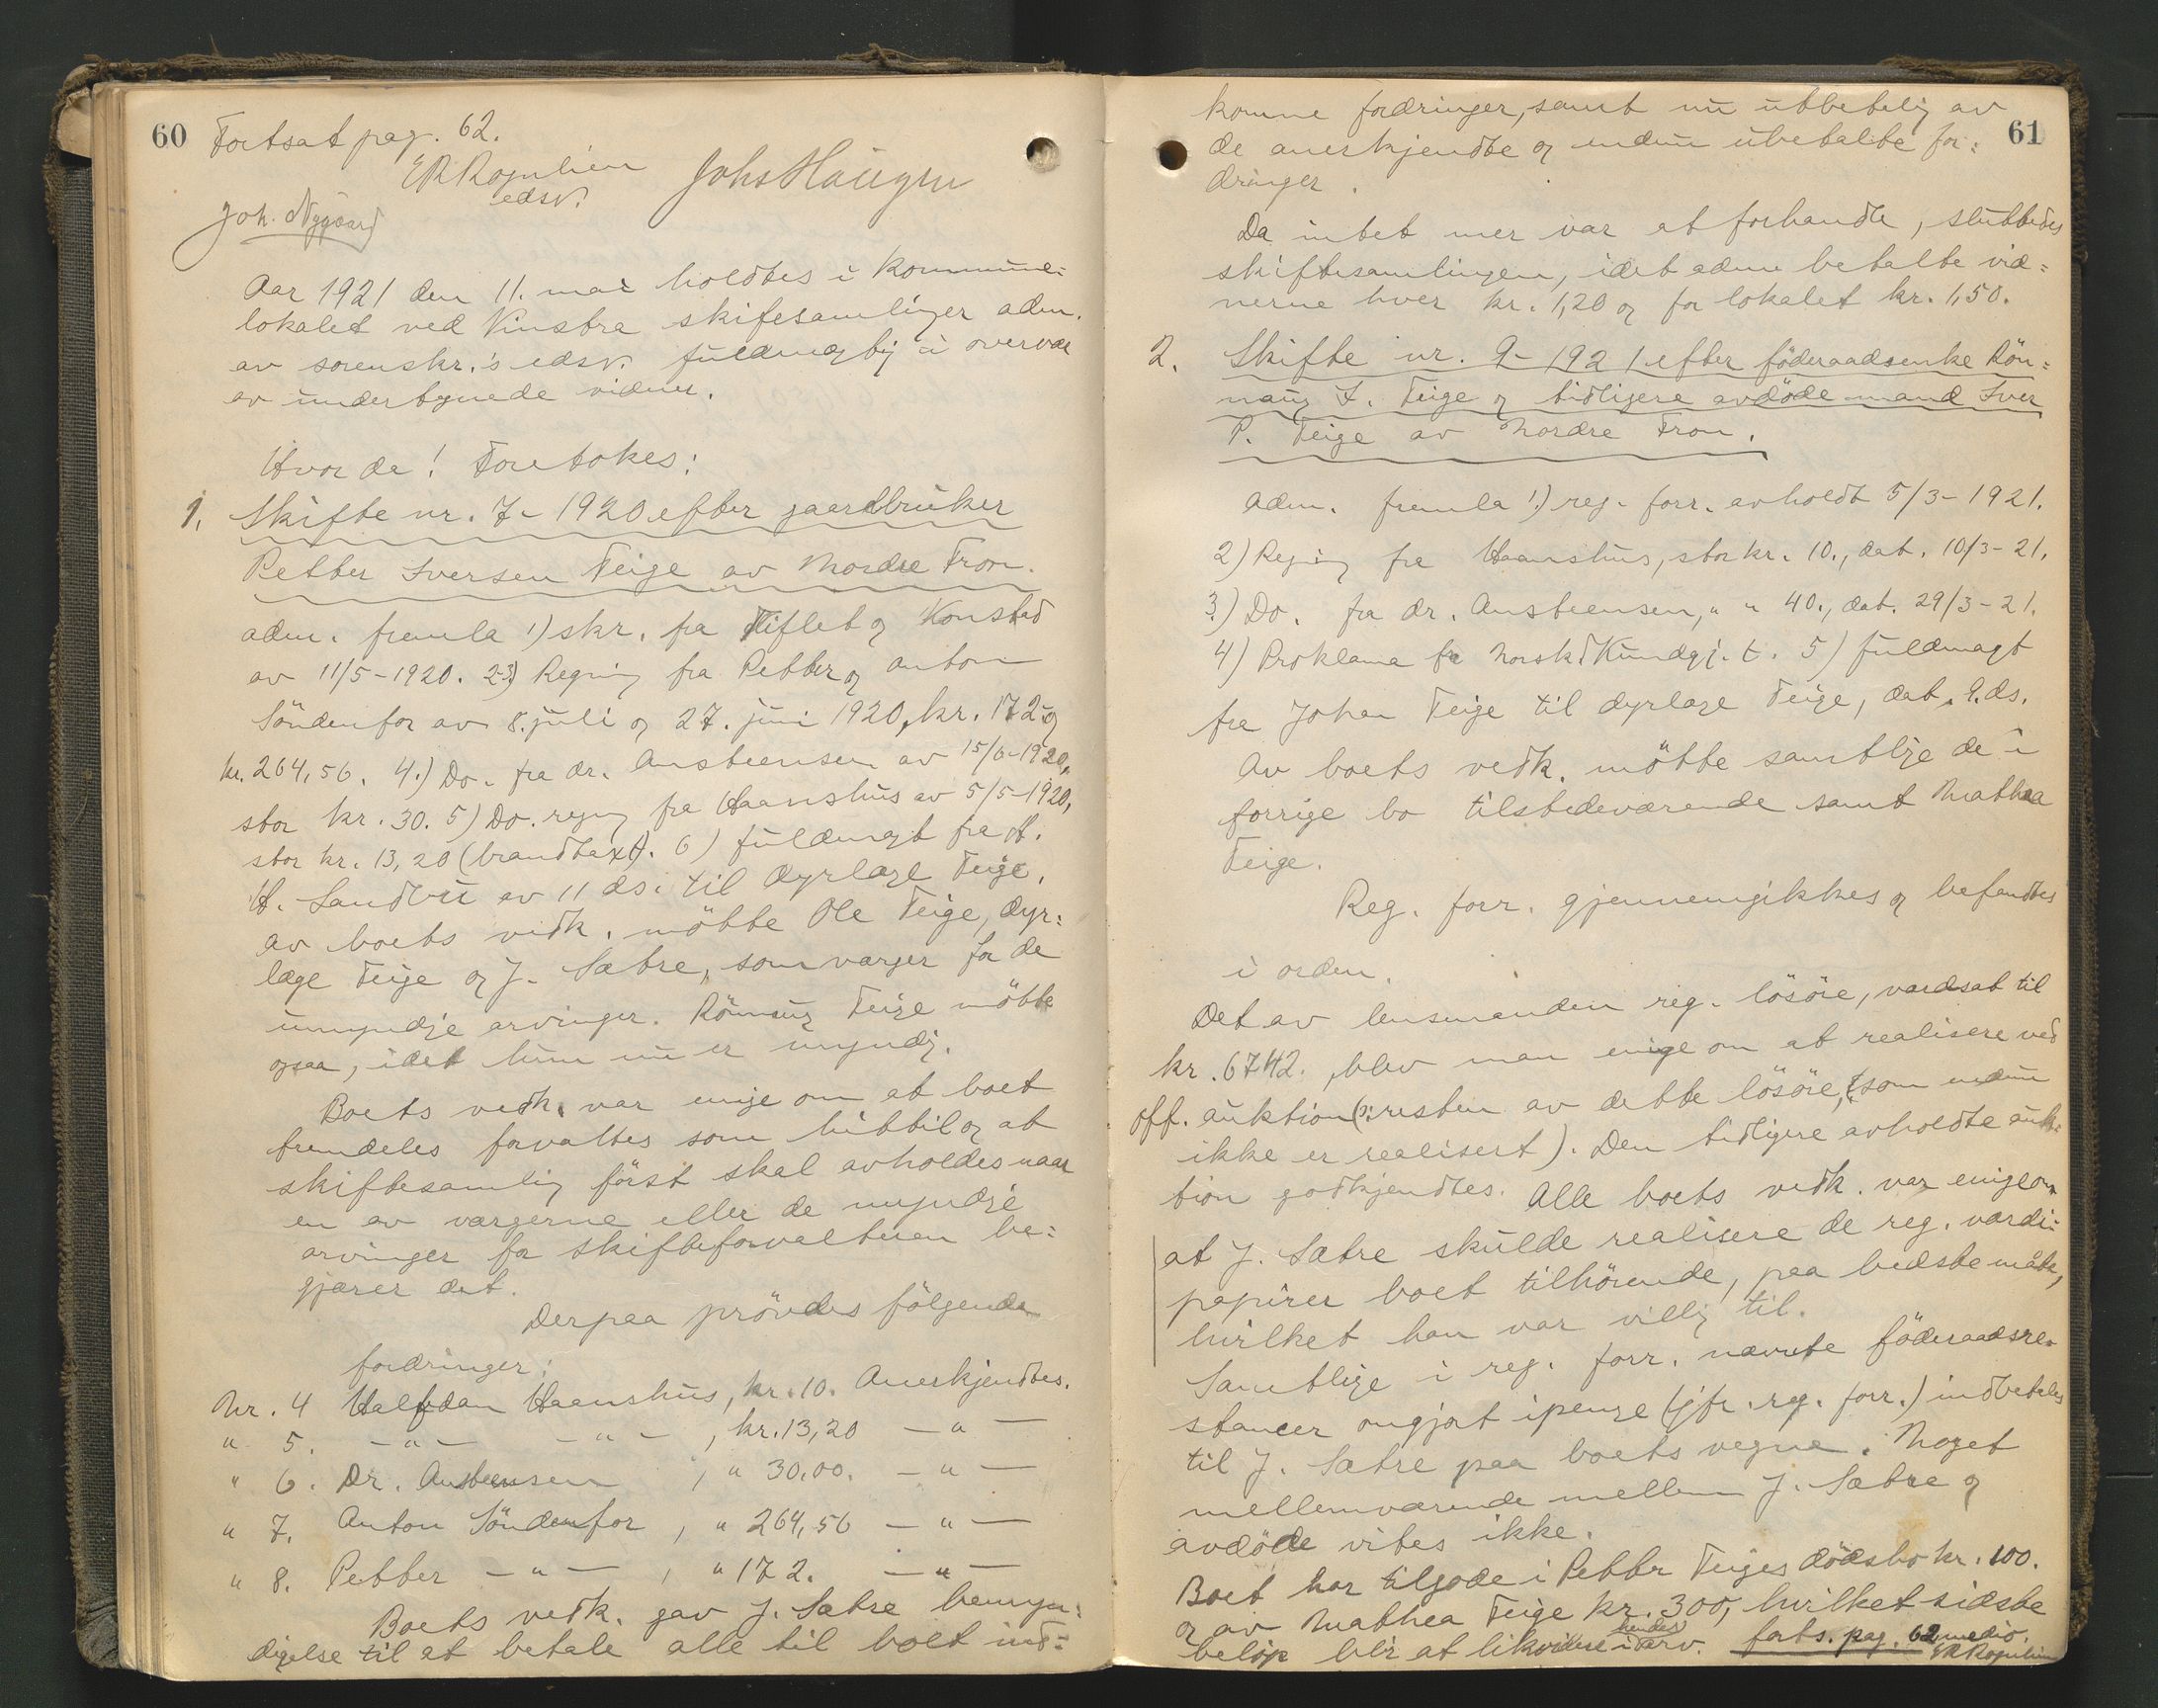 60
Fortsat pag. 62.
E R Rognlien
edsv.
Johs Haugen
Joh. Nygaard
Aar 1921 den 11. mai holdtes i Kommune-
lokalet ved Vinstra skifesamlinger adm.
av sorenskr.'s edsv. fuldmægtig i overvær
av undertegnede vidner.
Hvor da! Foretokes:
1. Skifte nr. 7 - 1920 efter gaardbruker
Petter Iversen Teige av Nordre Fron.
adm. fremla 1) skr. fra Tiflet og Konstad
av 11/5 - 1920. 2-3) Regning fra Petter og Anton
Söndenfor av 8. juli og 27. juni 1920, kr. 172 og
kr. 264,56. 4.) Do. fra dr. Austeensen av 15/6-1920,
stor kr. 30. 5) Do. regng fra Haanshus av 5/5-1920,
stor kr. 13,20 (brandtaxt). 6) fuldmagt fra H.
H. Sandbu av 11 ds. til dyrlæge Teige.
av boets vedk. mötte Ole Teige, dyr-
læge Teige og J. Sætre, som værger for de
umyndige arvinger. Rönnaug Teige mötte
ogsaa, idet hun nu er myndig.
Boets vedk. var enige om at boet
fremdeles forvaltes som hittil og at
skiftesamling först skal avholdes naar
en av værgerne eller de myndige
arvinger for skifteforvalteren be-
gjærer det.
Derpaa prövdes fölgende
fordringer:
Nr. 4 Halfdan Haanshus, kr. 10. Anerkjendtes.
" 5. - " - - " - , kr. 13,20 - " -
" 6. Dr. Austeensen , " 30,00. - " -
" 7. Anton Söndenfor , " 264,56 - " -
" 8. Petter - " - , " 172. - " -
Boets vedk. gav J. Sætre bemyn-
digelse til at betale alle til boet ind-
61
komne fordringer, samt nu utbetalig av
de anerkjendte og endnu ubetalte for-
dringer.
Da intet mer var at forhandle, sluttedes
skiftesamlingen, idet adm betalte vid-
nerne hver kr. 1,20 og for lokalet kr. 1,50.
2. Skifte nr. 9 - 1921 efter föderaadsenke Rön-
naug I. Teige og tidligere avdöde mand Iver
P. Teige av Nordre Fron.
Adm. fremla 1) reg. forr. avholdt 5/3 - 1921.
2) Regning fra Haanshus, stor kr. 10., dat. 10/3 - 21.
3) Do. fra dr. Austeensen, " " 40., dat. 29/3 - 21.
4) Proklama fra Norsk Kundgj. t. 5) fuldmagt
fra Johan Teige til dyrlæge Teige, dat. 9. ds.
Av boets vedk. mötte samtlige de i
forrige bo tilstedeværende samt Mathea
Teige.
Reg. forr. gjennemgikkes og befandtes
i orden.
Det av lensmanden reg. lösöre, værdsat til
kr. 6742., blev man enige om at realisere ved
off. auktion (: resten av dette lösöre, som endnu
ikke er realisert). Den tidligere avholdte auk-
tion godkjendtes. Alle boets vedk. var enige om
at J. Sætre skulde realisere de reg. værdi-
papirer boet tilhörende, paa bedste måte,
hvilket han var villig til.
Samtlige i reg. forr. nævnte föderaadsre-
stancer omgjort i penge (jfr. reg. forr.) indbetales
til J. Sætre paa boets vegne. Noget
mellemværende mellem J. Sætre og
avdöde vites ikke.
Boet har tilgode i Petter Teiges dödsbo kr. 100.
og av Mathea Teige kr. 300, hvilket sidste
belöp blir at likvidere i hendes arv. forts. pag. 62 medio.
E R Rognlien